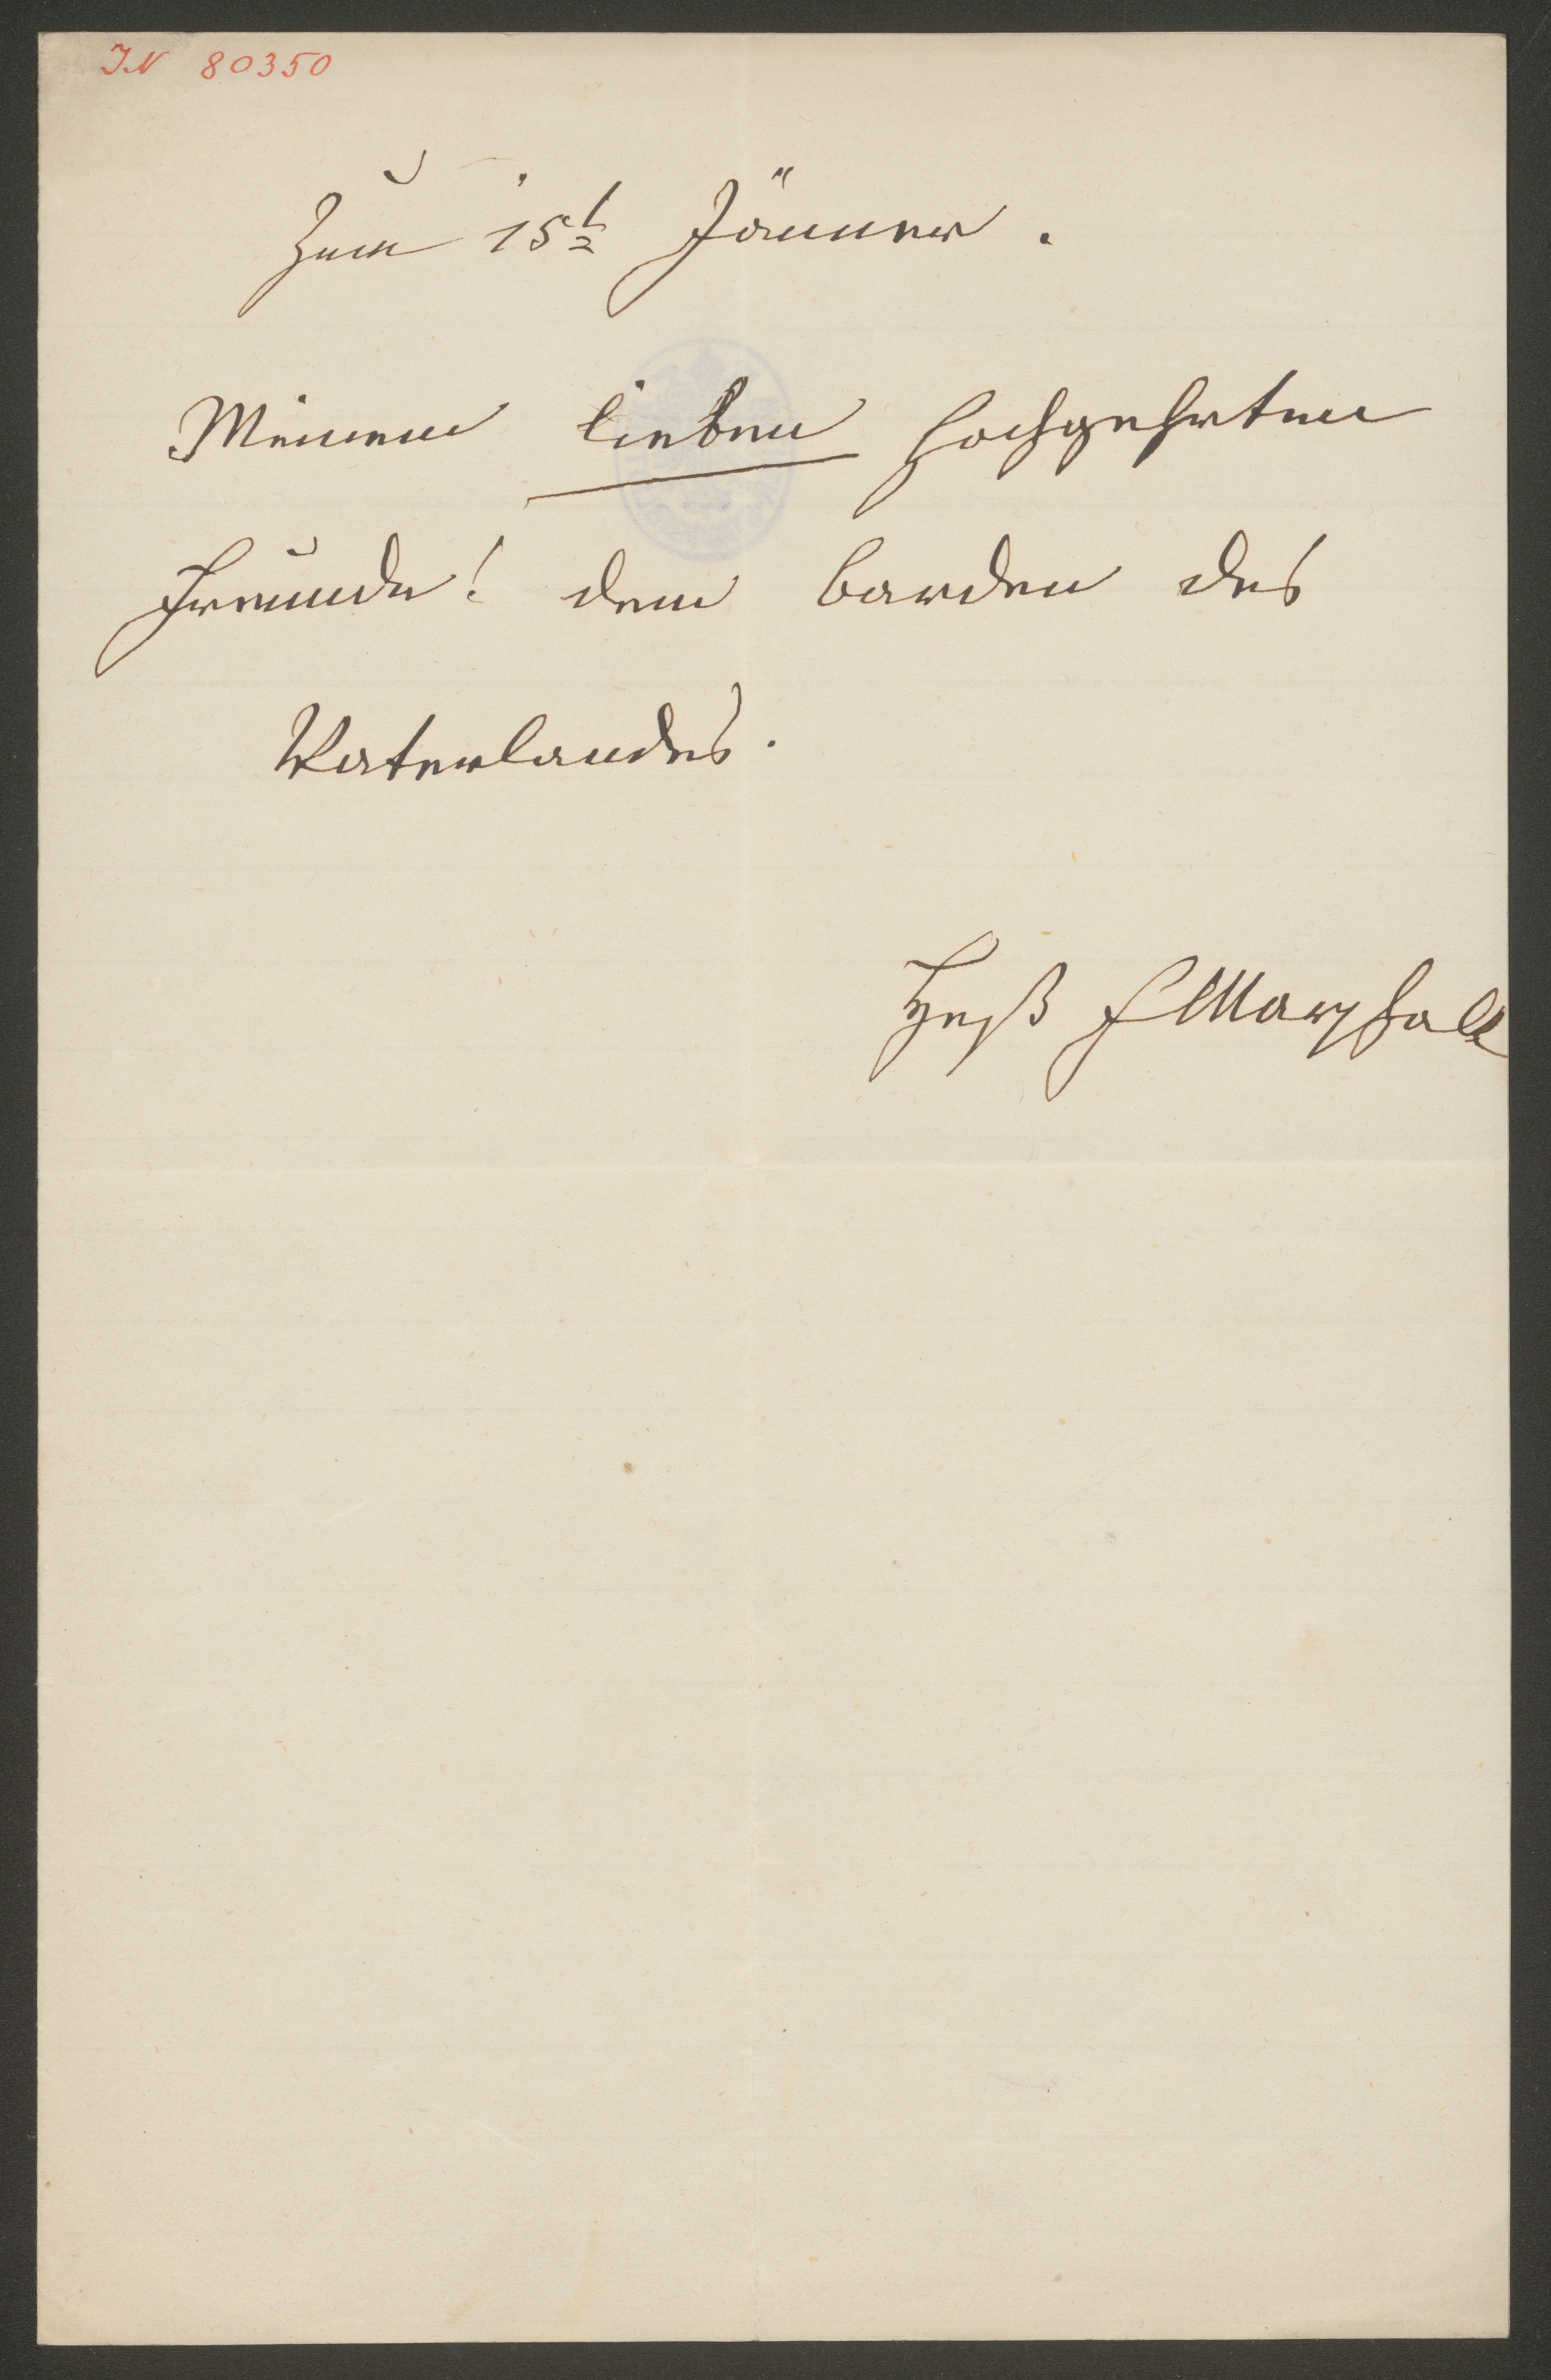 IN 80350
Zum 15t Jänner.
Meinem lieben hochgeehrten
Freunde! dem barden des
Vaterlandes.
Heß FMarschall